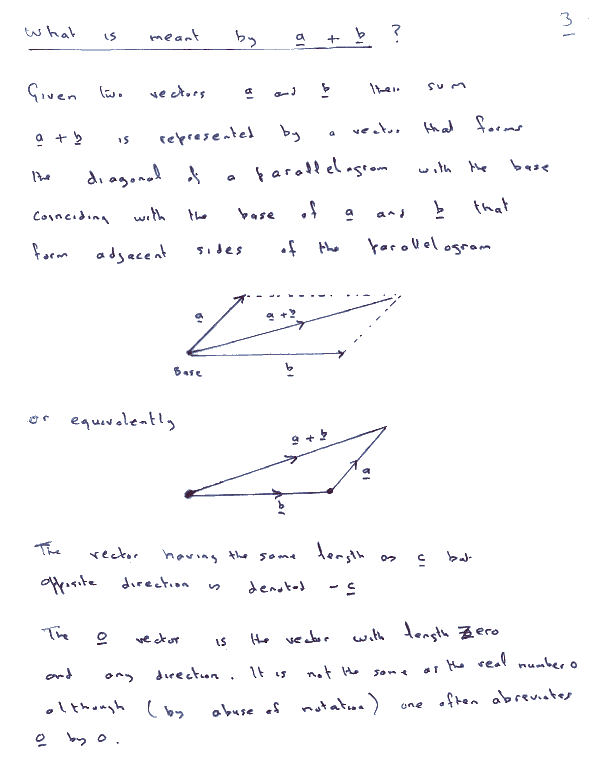 3
What is meant by a + b ?
Given two vectors a and b their sum
a + b is represented by a vector that forms
the diagonal of a parallelogram with the base
coinciding with the base of a and b that
form adjacent sides of the parallelogram
a
a + b
Base
b
or equivalently
a + b
a
b
The vector having the same length as c but
opposite direction is denoted - c
The 0 vector is the vector with length zero
and any direction. It is not the same as the real number 0
although (by abuse of notation) one often abreviates
0 by 0.